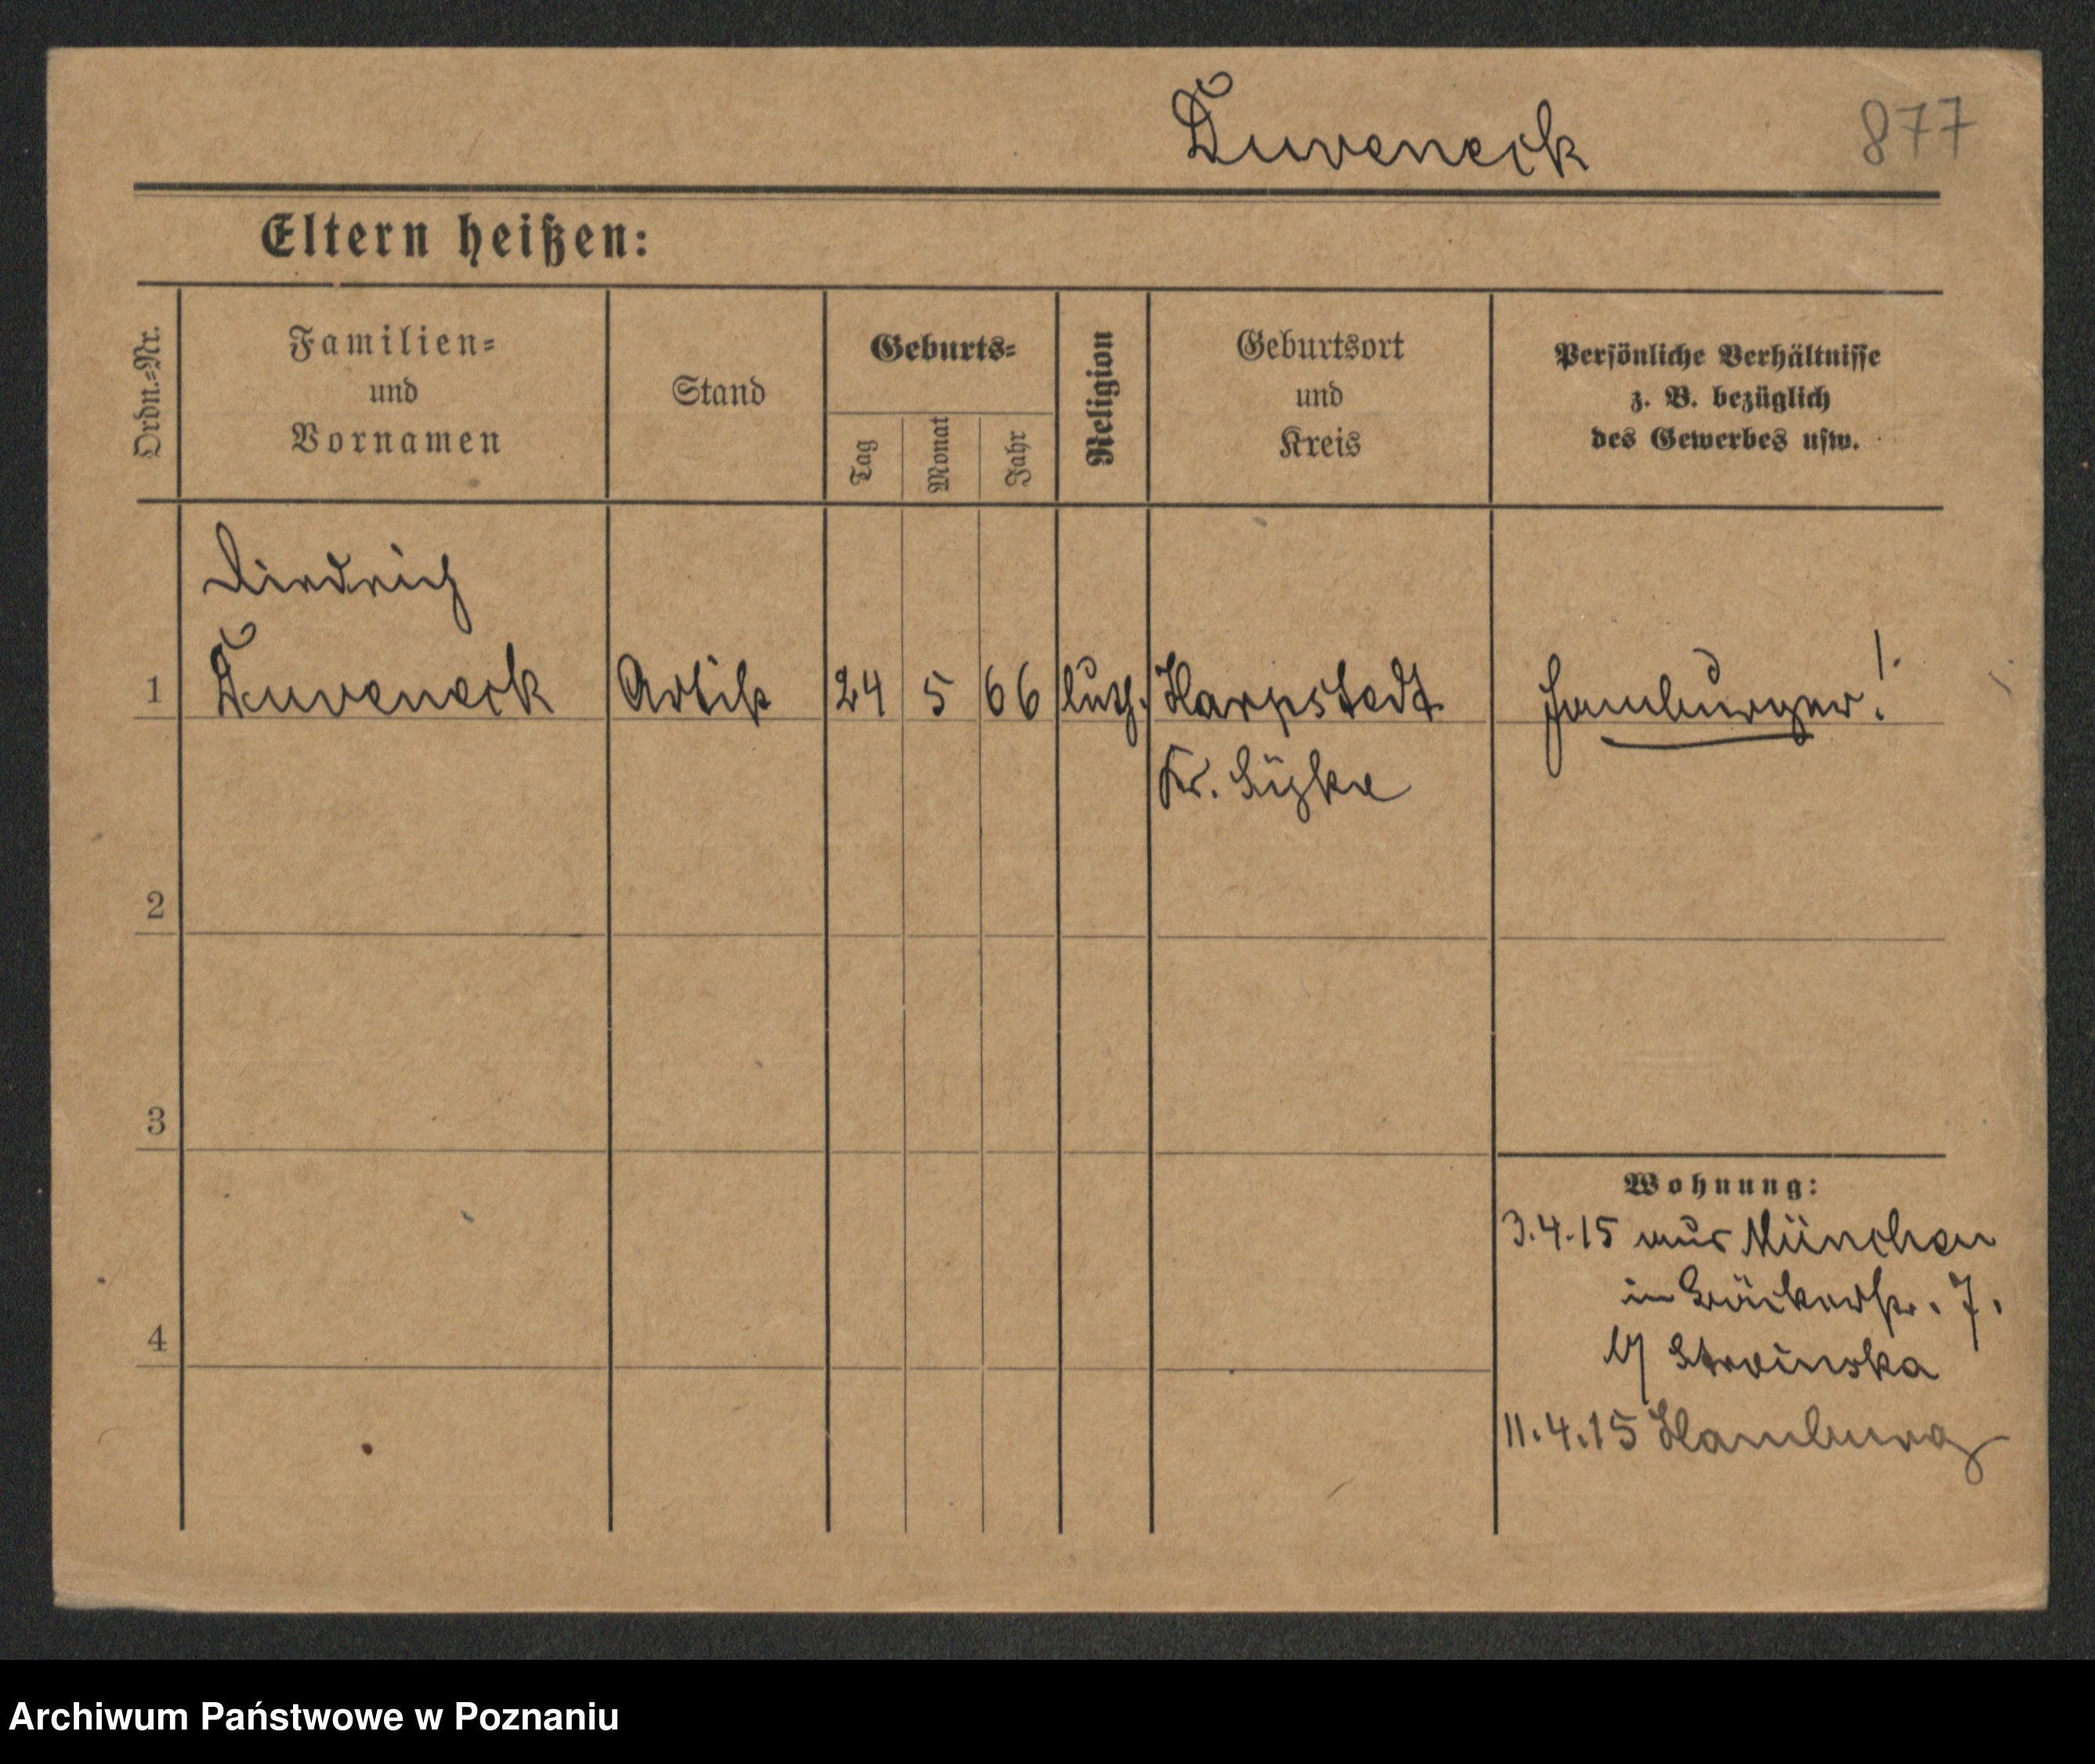 Duveneck
877
Eltern heißen:
Ordn.-Nr.
Familien-
und
Vornamen
Stand
Geburts-
Tag
Monat
Jahr
Religion
Geburtsort
und
Kreis
Persönliche Verhältnisse
z. B. bezüglich
des Gewerbes usw.
Diedrich
1 Duveneck Artist 24 5 66 luth. Harpstedt Hamburger!
Kr. Syke
2
3
4
Wohnung:
3.4.15 aus München
in Bäckerstr. 7.
b/ Stroinska
11.4.15 Hamburg
Archiwum Państwowe w Poznaniu